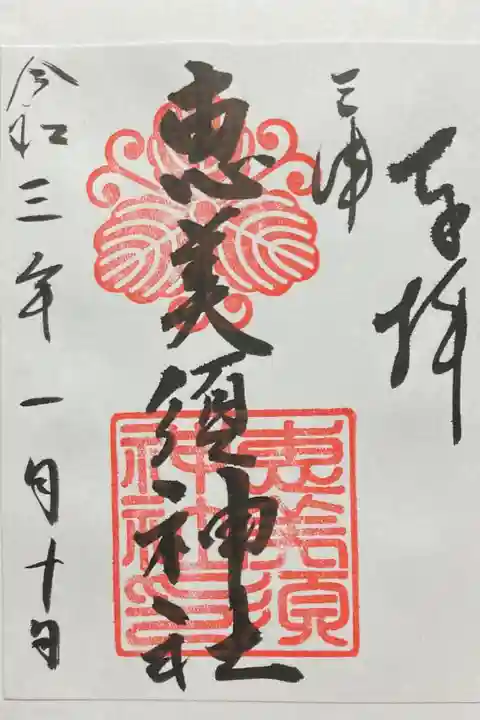 奉拝
三津
恵美須神社
恵美須
神社印
令和三年一月十日